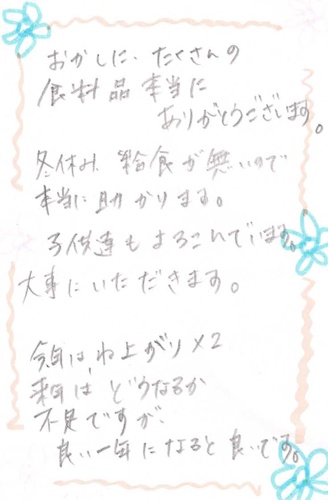 おかしに、たくさんの
食料品本当に
ありがとうございます。
冬休み、給食が無いので
本当に助かります。
子供達もよろこんでいます。
大事にいただきます。
今年は、ね上がり×2
来年は、どうなるか
不足ですが、
良い一年になると良いです。